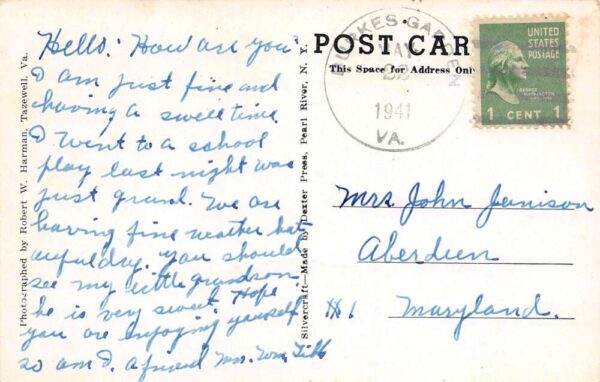 Hello! How are you?
I am just fine and
having a swell time.
I went to a school
play last night was
just grand. We are
having fine weather but
awful dry. you should
see my little grandson.
he is very sweet. Hope
you are enjoying yourself
so am I. a friend Mrs. Wm.
Photographed by Robert W. Harman, Tazewell, Va.
Silvercraft—Made by Dexter Press, Pearl River, N. Y.
POST CAR
This Space for Address Only
BURKES GARDEN
MAY
1941
VA.
UNITED
STATES
POSTAGE
GEORGE
WASHINGTON
1 CENT 1
Mrs John Jenison
Aberdeen
Maryland.